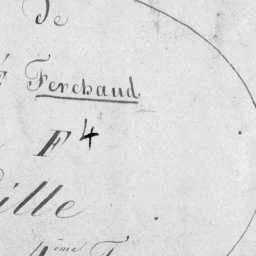 de
É Ferchaud
F 4
ille
4ème T